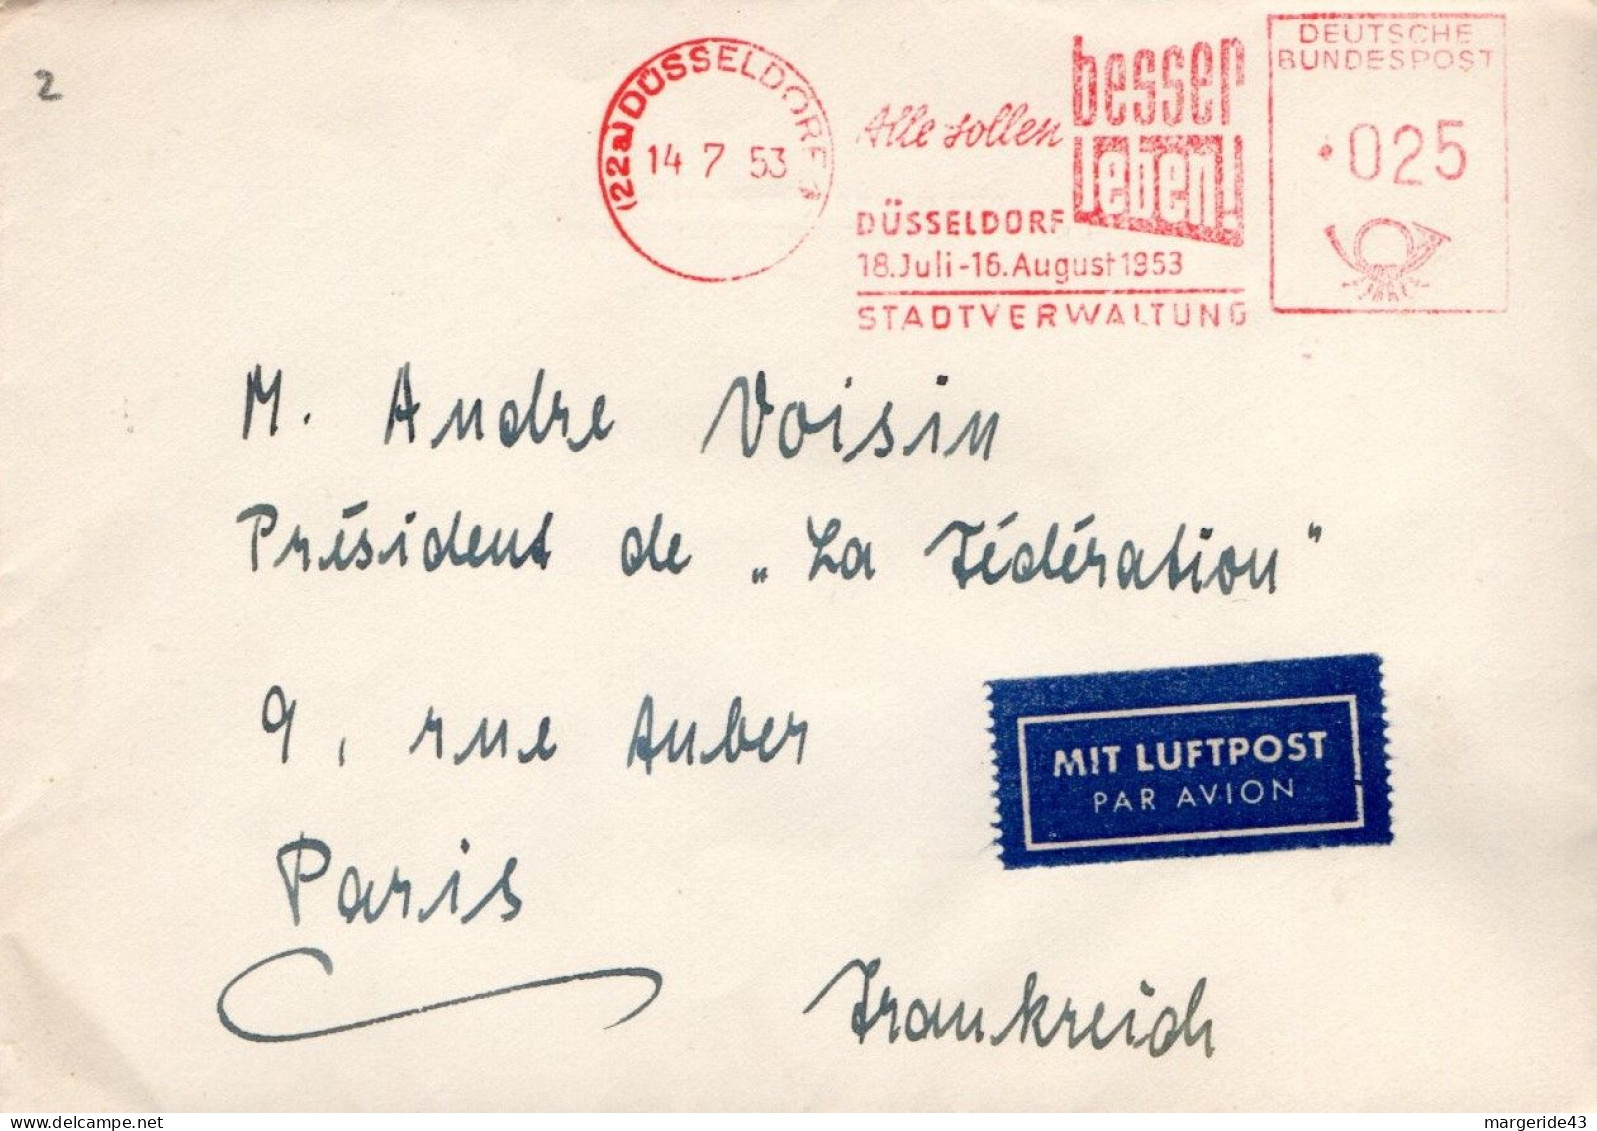 2
(22a) DÜSSELDORF 1
14 7 53
Alle sollen besser leben!
DÜSSELDORF
18. Juli - 16. August 1953
STADTVERWALTUNG
DEUTSCHE
BUNDESPOST
025
M. Andre Voisin
Président de „La Fédération"
9, rue Auber
MIT LUFTPOST
PAR AVION
Paris
Frankreich
margeride43